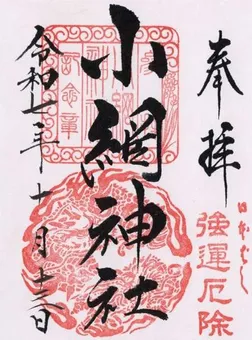 奉拝
日本ばし
強運厄除
小網神社
令和七年十月十二日